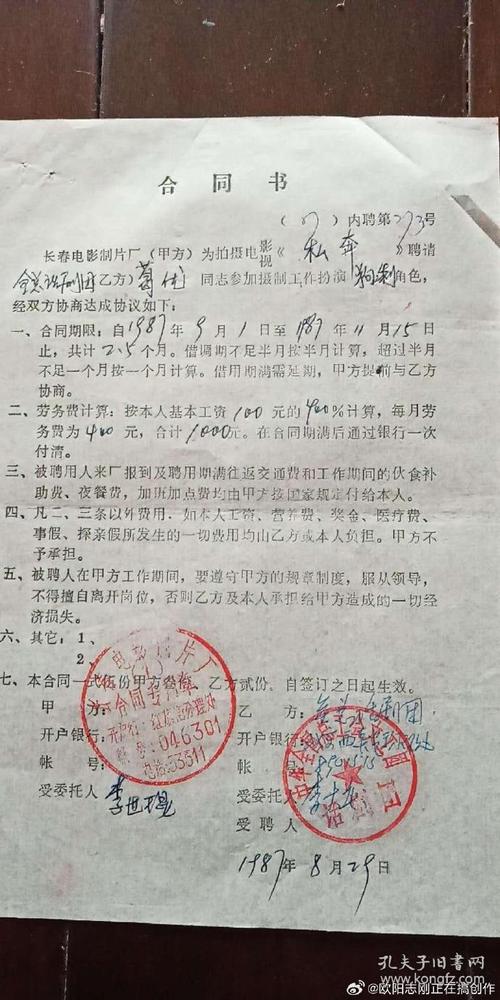 合同书
(87)内聘第273号
长春电影制片厂（甲方）为拍摄电影视《私奔》聘请
全总话剧团乙方）葛优 同志参加摄制工作扮演 角色，
经双方协商达成协议如下：
一、合同期限：自1987年9月1日至1987年11月15日
止，共计2.5个月。借调期不足半月按半月计算，超过半月
不足一个月按一个月计算。借用期满需延期，甲方提前与乙方
协商。
二、劳务费计算：按本人基本工资100元的400%计算，每月劳
务费为400元，合计1000元。在合同期满后通过银行一次
付清。
三、被聘用人来厂报到及聘用期满往返交通费和工作期间的伙食补
助费、夜餐费，加班加点费均由甲方按国家规定付给本人。
四、凡二、三条以外费用，如本人工资、营养费、奖金、医疗费、
事假、探亲假所发生的一切费用均由乙方或本人负担。甲方不
予承担。
五、被聘人在甲方工作期间，要遵守甲方的规章制度，服从领导，
不得擅自离开岗位，否则乙方及本人承担给甲方造成的一切经
济损失。
六、其它：1、
2、
七、本合同一式 份甲方 份，乙方贰份，自签订之日起生效。
甲 方：
开户银行：
帐 号：
受委托人 李世
乙 方：全总话剧团
开户银行：
帐 号：
受委托人
受聘人
1987年8月29日
电影制片厂
合同专用章
开户行：红旗街办理处
帐号：046301
电话：53511
中华全国总工会
话剧团
孔夫子旧书网
@欧阳志刚正在搞创作